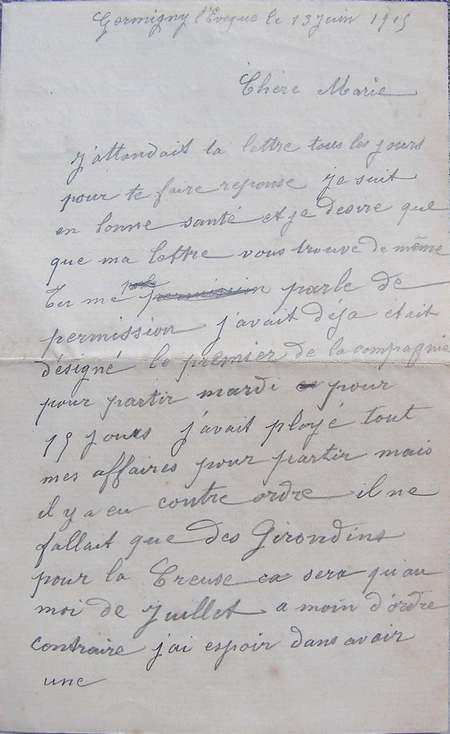 Germigny l'Eveque le 13 juin 1915
Chère Marie
j'attendait ta lettre tous les jours
pour te faire reponse je suit
en bonne santé et je desire que
que ma lettre vous trouve de même
Tu me parle de
permission j'avait déja etait
désigné le premier de la compagnie
pour partir mardi pour
15 jours j'avait ployé tout
mes affaires pour partir mais
il y a eu contre ordre il ne
fallait que des Girondins
pour la Creuse ca sera qu'au
moi de Juillet a moin d'ordre
contraire j'ai espoir dans avoir
une